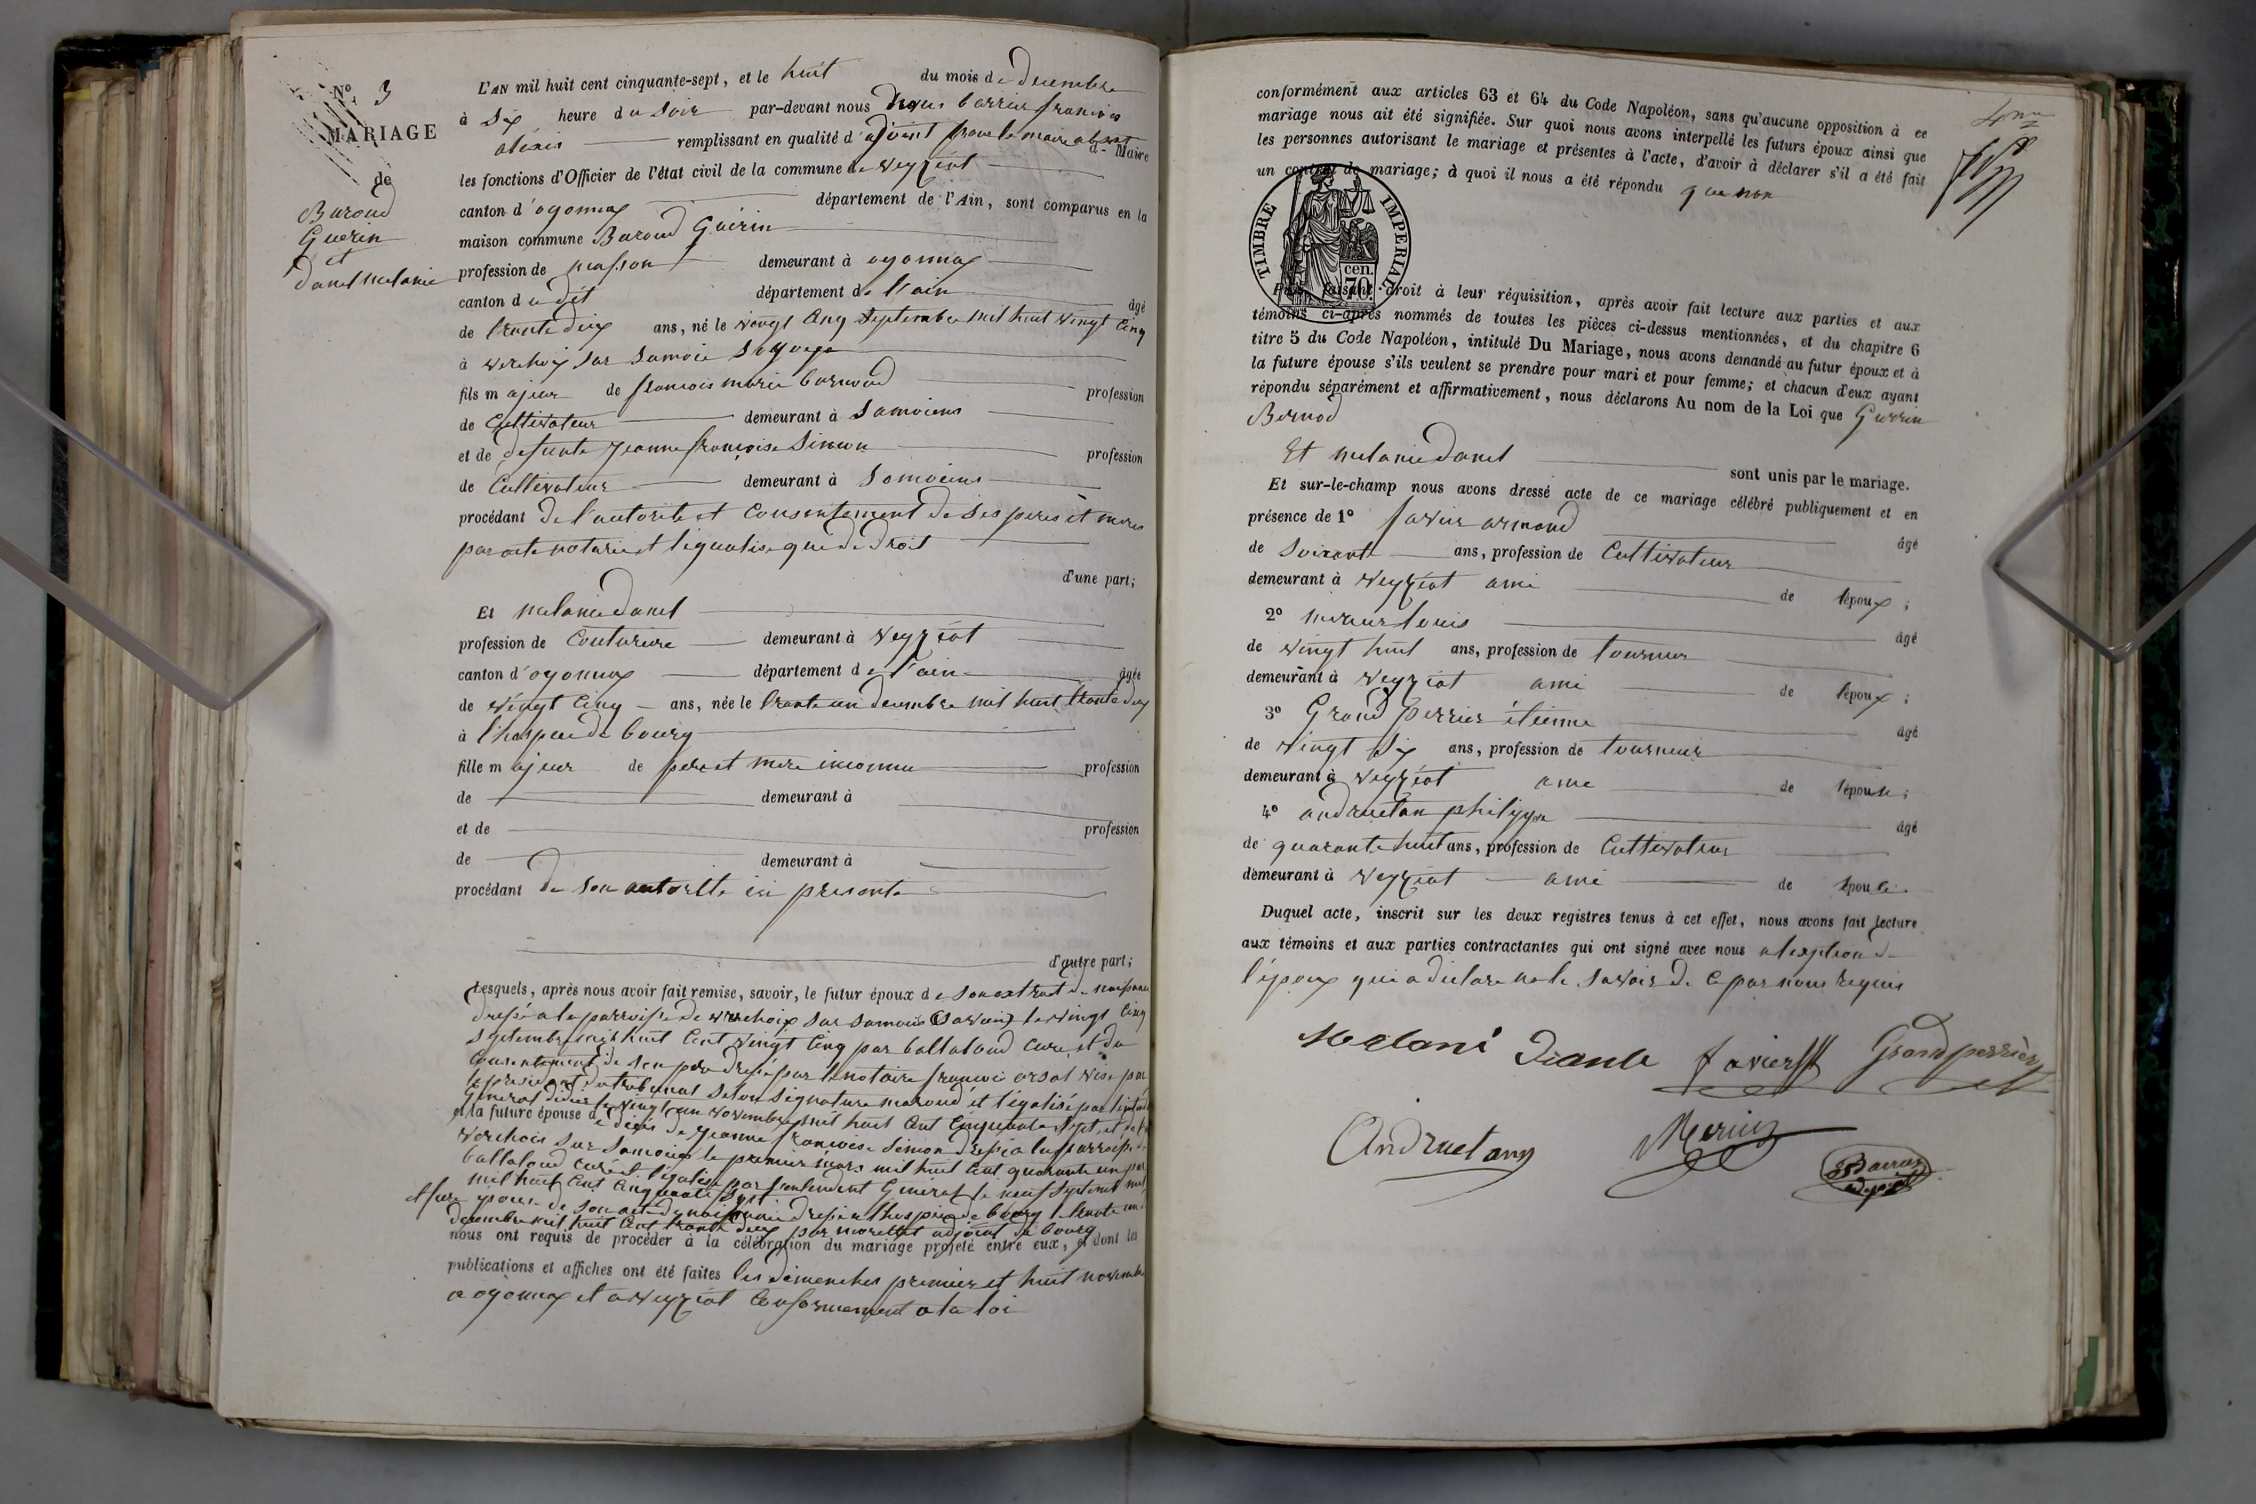 N° 3
MARIAGE
de
Baroud
Guérin
et
danel melanie
L'AN mil huit cent cinquante-sept, et le huit du mois de decembre
à Six heure du Soir par-devant nous barrier francois
alexis remplissant en qualité d'adjoint pour le maire absent de Maire
les fonctions d'Officier de l'état civil de la commune de veyziat
canton d'oyonnax département de l'Ain, sont comparus en la
maison commune Baroud Guérin
profession de masson demeurant à oyonnax
canton du dit département de l'ain âgé
de trente deux ans, né le vingt cinq septembre mil huit vingt cinq
à verchoix sur samoin
fils majeur de francois marie barnoud profession
de Cultivateur demeurant à Samoiens
et de defunte jeanne françoise Simon profession
de Cultivateur demeurant à Samoiens
procédant de l'autorite et Consentement de Ses peres et meres
par acte notarié et légalise que de droit
d'une part;
Et melanie danel
profession de Couturiere demeurant à veyziat
canton d'oyonnax département de l'ain âgée
de vingt cinq ans, née le trente un decembre mil huit trente deux
à l'hospice de bourg
fille majeur de pere et mere inconnu profession
de demeurant à
et de profession
de demeurant à
procédant de son autorite ici presente
d'autre part;
Lesquels, après nous avoir fait remise, savoir, le futur époux de son extrait de naissance
dressé a la parroisse de verchoix sur samoins (savoie) le vingt cinq
septembre mil huit Cent vingt cinq par ballaloud curé, et du
consentement de son pere dressé par le notaire francois orsat visé par
le president du tribunal selon signature maroud et légalisé par l'intendant
Général le vingt un novembre mil huit Cent cinquante sept, et de l'acte
et la future épouse de décès de jeanne francoise Simon dressé a la parroisse de
verchois sur Samoins le premier mars mil huit Cent quarante un par
ballaloud curé et légalisé par l'intendent Général le neuf septembre
mil huit Cent cinquante Sept
et future epouse de son acte de naissance dressé a lhospice de bourg le trente un
decembre mil huit Cent trente deux par morellet adjoint de bourg
nous ont requis de procéder à la célébration du mariage projeté entre eux, et dont les
publications et affiches ont été faites les dimenches premier et huit novembre
a oyonnax et a veyziat Conformement a la loi
conformément aux articles 63 et 64 du Code Napoléon, sans qu'aucune opposition à ce
mariage nous ait été signifiée. Sur quoi nous avons interpellé les futurs époux ainsi que
les personnes autorisant le mariage et présentes à l'acte, d'avoir à déclarer s'il a été fait
un contrat de mariage; à quoi il nous a été répondu que non
TIMBRE IMPERIAL
cen.
70.
Puis faisant droit à leur réquisition, après avoir fait lecture aux parties et aux
témoins ci-après nommés de toutes les pièces ci-dessus mentionnées, et du chapitre 6
titre 5 du Code Napoléon, intitulé Du Mariage, nous avons demandé au futur époux et à
la future épouse s'ils veulent se prendre pour mari et pour femme; et chacun d'eux ayant
répondu séparément et affirmativement, nous déclarons Au nom de la Loi que Guerrin
Bernod
Et melanie danel sont unis par le mariage.
Et sur-le-champ nous avons dressé acte de ce mariage célébré publiquement et en
présence de 1° favier armand âgé
de Soixante ans, profession de Cultivateur
demeurant à veyziat ami de l'époux;
2° mercier louis âgé
de vingt huit ans, profession de tourneur
demeurant à veyziat ami de l'époux;
3° Grand perrier étienne âgé
de vingt Six ans, profession de tourneur
demeurant à veyziat ami de l'épouse;
4° andruetan philippe âgé
de quarante huit ans, profession de Cultivateur
demeurant à veyziat ami de l'épouse.
Duquel acte, inscrit sur les deux registres tenus à cet effet, nous avons fait lecture
aux témoins et aux parties contractantes qui ont signé avec nous a lexeption de
l'époux qui a diclare ne le savoir de ce par nous requis
Melani favier Grandperrier
Andruetany Mercier
Barrier
adjoint